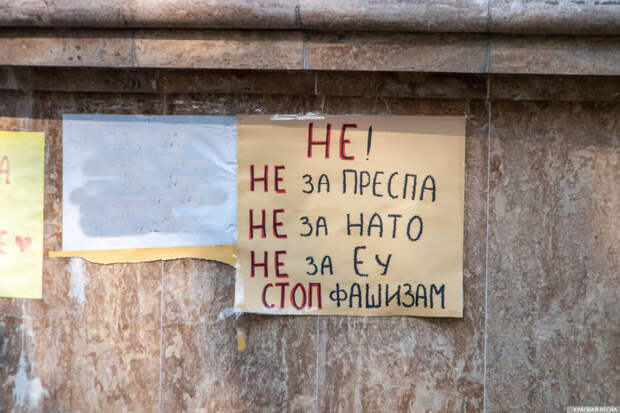 А
Е
НЕ!
НЕ ЗА ПРЕСПА
НЕ ЗА НАТО
НЕ ЗА ЕУ
СТОП ФАШИЗАМ
КРАСНАЯ ВЕСНА